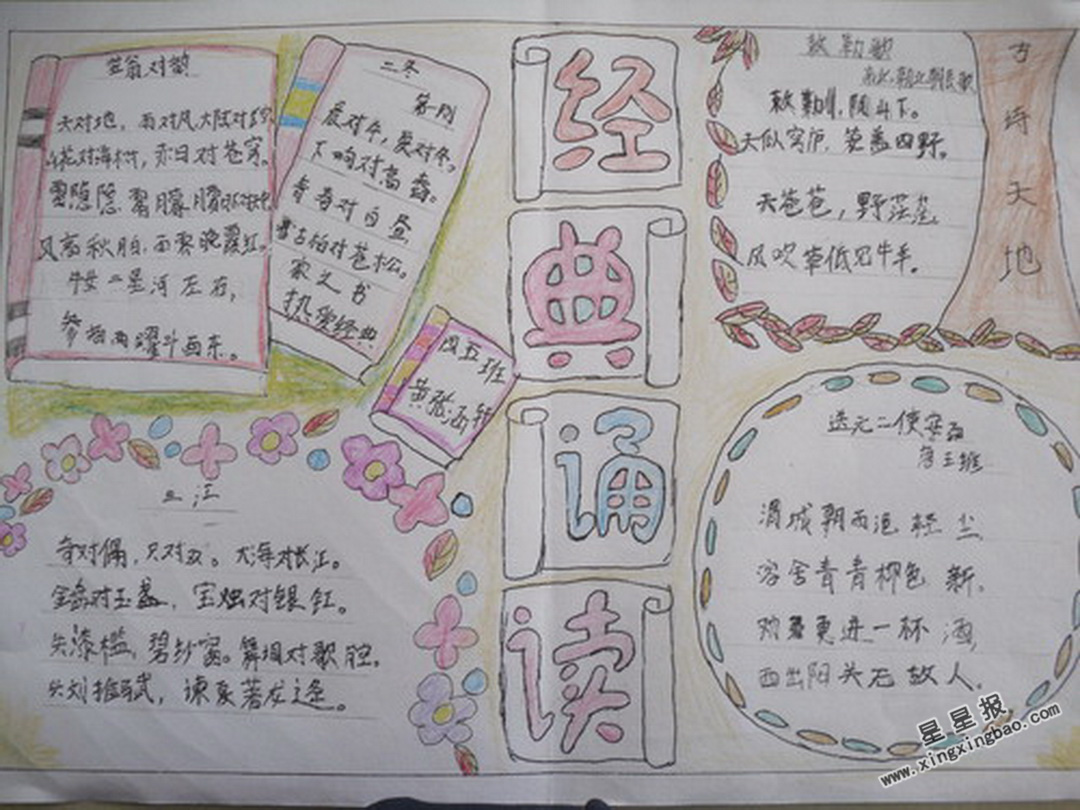 笠翁对韵
天对地，雨对风大陆对
花对海树，赤日对苍穹。
隐隐
风高秋月白，雨霁晚霞红。
牛女二星河左右，
参商两曜斗西东。
二冬
晨对午，夏对冬。
下晌对高舂。
青春对白昼
古柏对苍松。
热爱经典
四五班
黄张
三江
奇对偶，只对双。大海对长江。
金盘对玉盏，宝烛对银釭。
朱漆槛，碧纱窗。舞调对歌腔。
谏夏著龙逄。
经
典
诵
读
敕勒歌
南北朝北朝民歌
敕勒川，阴山下。
天似穹庐，笼盖四野。
天苍苍，野茫茫，
风吹草低见牛羊。
古诗天地
送元二使安西
唐王维
渭城朝雨浥轻尘
客舍青青柳色新，
劝君更进一杯酒，
西出阳关无故人。
星星报
www.xingxingbao.com